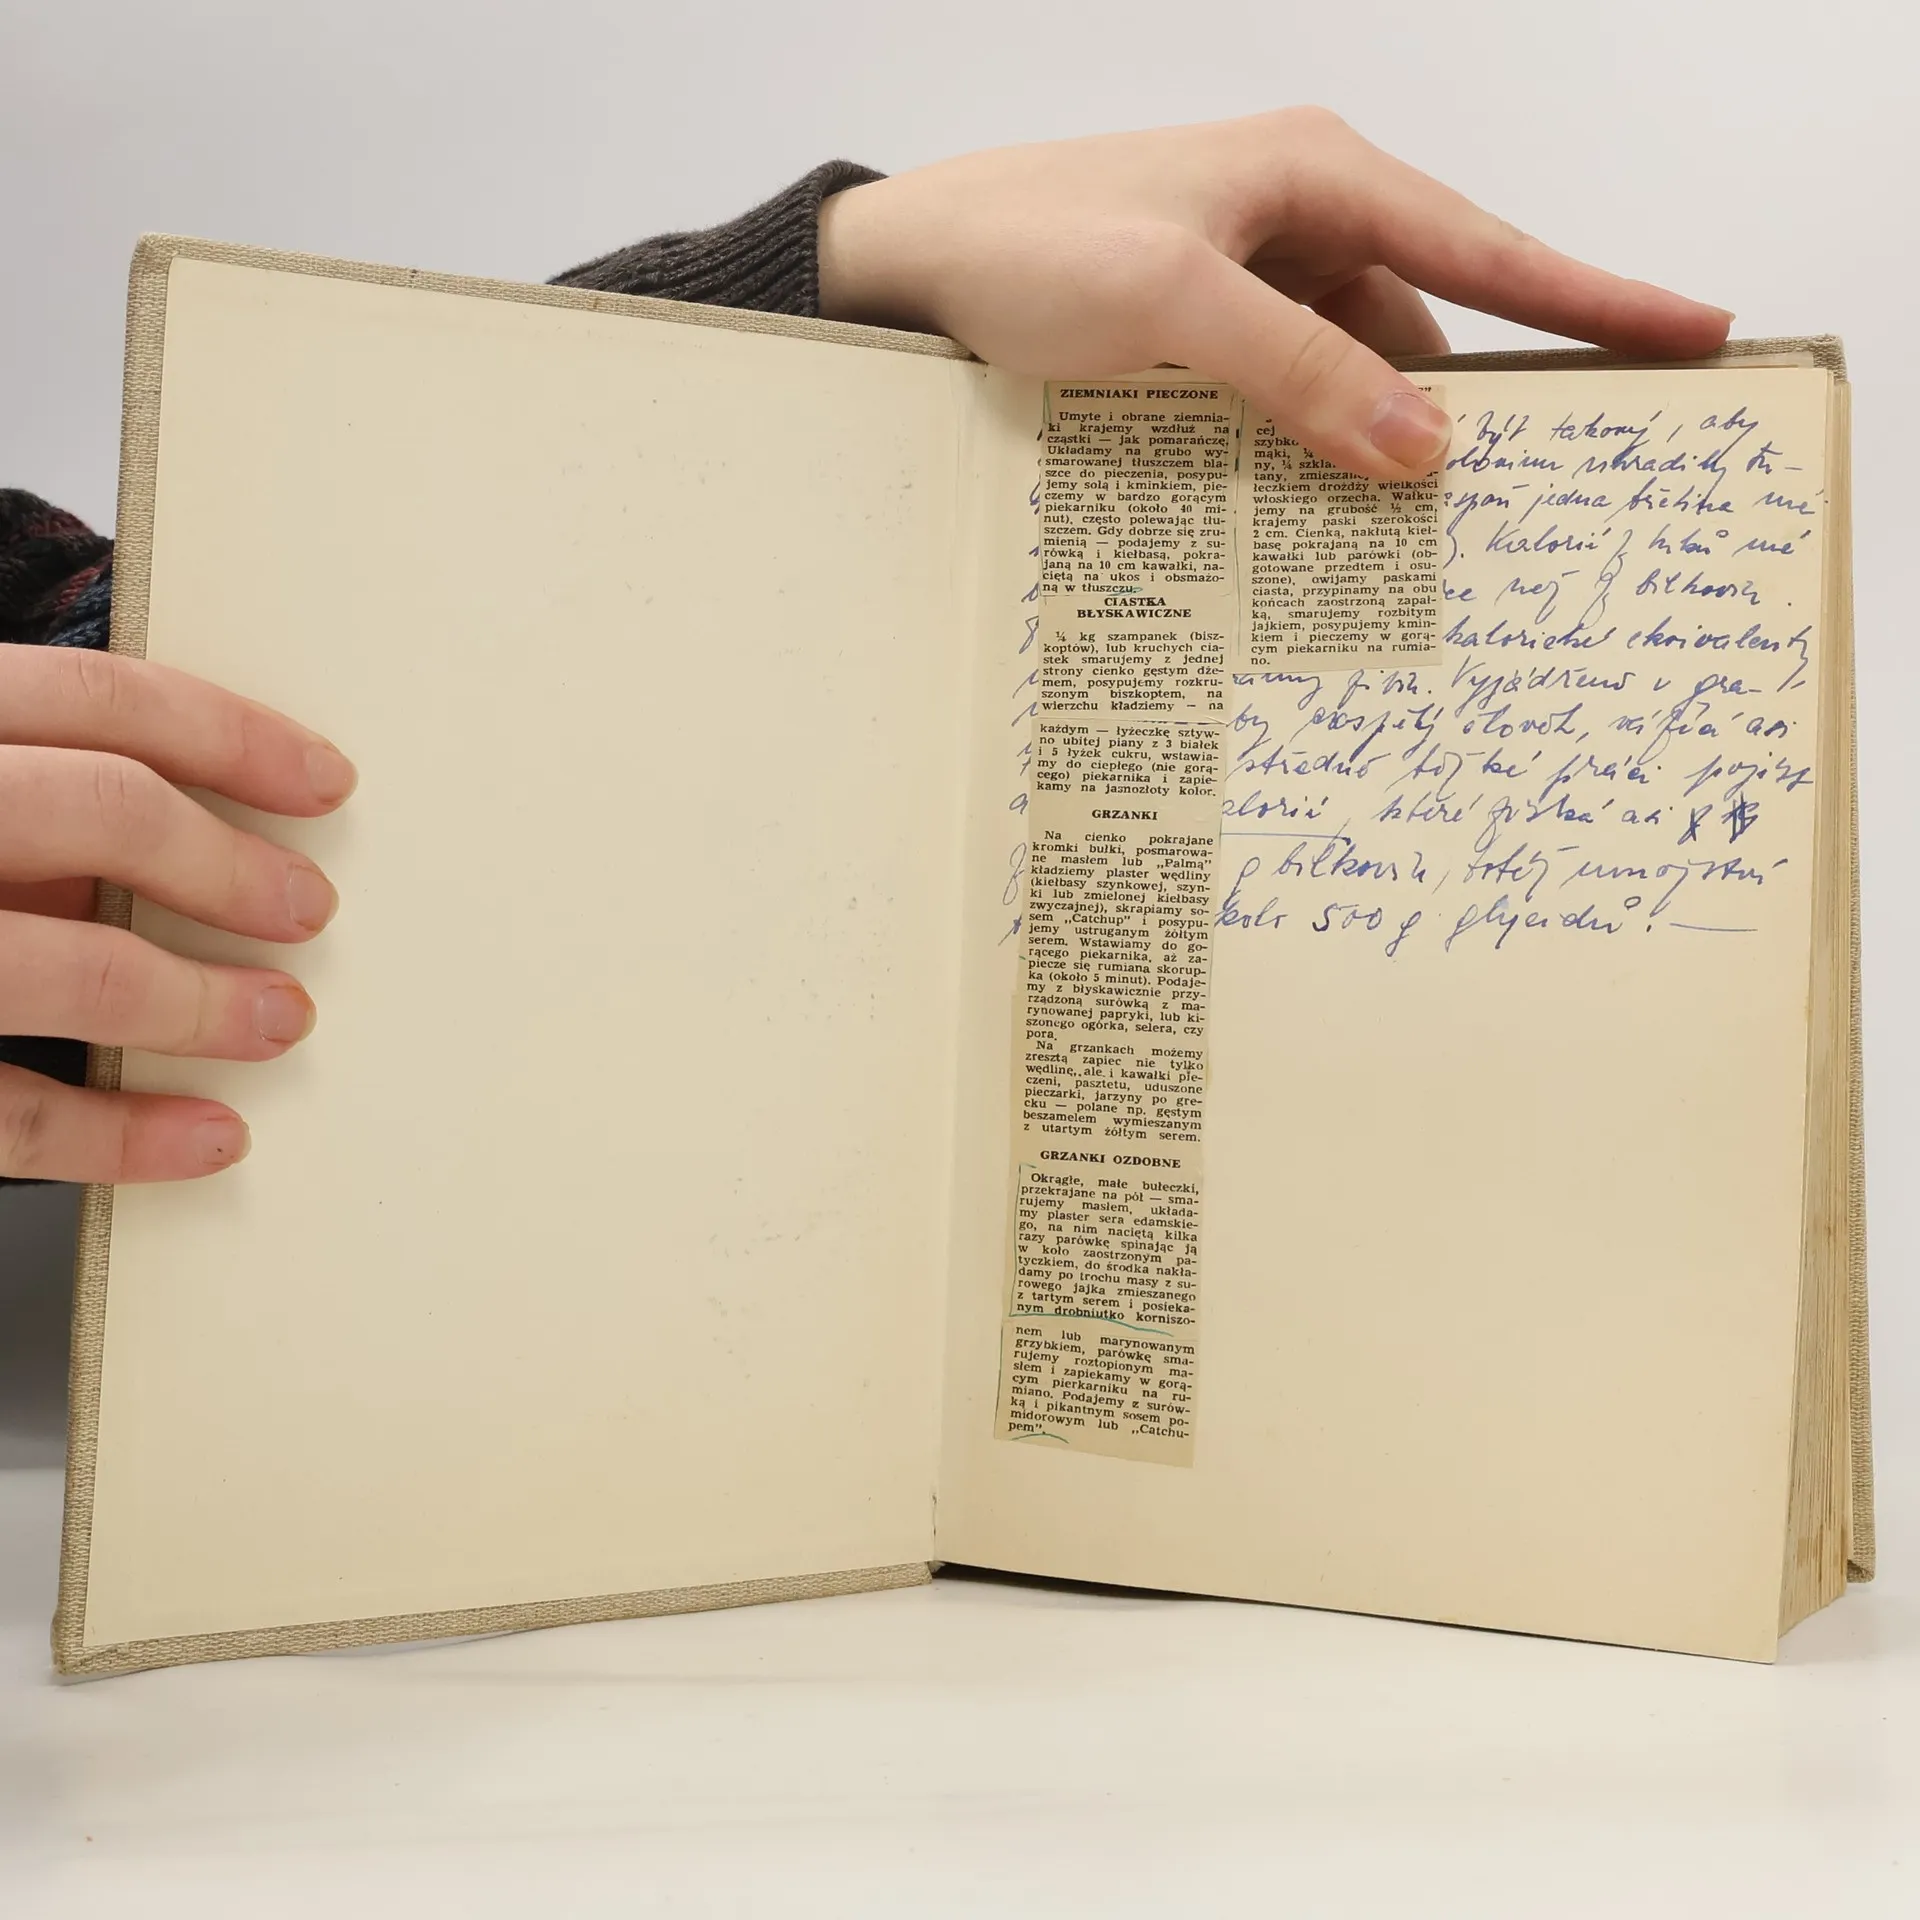 ZIEMNIAKI PIECZONE
Umyte i obrane ziemnia-
ki krajemy wzdłuż na
cząstki — jak pomarańczę.
Układamy na grubo wy-
smarowanej tłuszczem bla-
szce do pieczenia, posypu-
jemy solą i kminkiem, pie-
czemy w bardzo gorącym
piekarniku (około 40 mi-
nut), często polewając tłu-
szczem. Gdy dobrze się zru-
mienią — podajemy z su-
rówką i kiełbasą, pokra-
janą na 10 cm kawałki, na-
ciętą na ukos i obsmażo-
ną w tłuszczu.
CIASTKA
BŁYSKAWICZNE
¼ kg szampanek (bisz-
koptów), lub kruchych cia-
stek smarujemy z jednej
strony cienko gęstym dże-
mem, posypujemy rozkru-
szonym biszkoptem, na
wierzchu kładziemy — na
każdym — łyżeczkę sztyw-
no ubitej piany z 3 białek
i 5 łyżek cukru, wstawia-
my do ciepłego (nie gorą-
cego) piekarnika i zapie-
kamy na jasnozłoty kolor.
GRZANKI
Na cienko pokrajane
kromki bułki, posmarowa-
ne masłem lub „Palmą"
kładziemy plaster wędliny
(kiełbasy szynkowej, szyn-
ki lub zmielonej kiełbasy
zwyczajnej), skrapiamy so-
sem „Catchup" i posypu-
jemy ustruganym żółtym
serem. Wstawiamy do go-
rącego piekarnika, aż za-
piecze się rumiana skorup-
ka (około 5 minut). Podaje-
my z błyskawicznie przy-
rządzoną surówką z ma-
rynowanej papryki, lub ki-
szonego ogórka, selera, czy
pora.
Na grzankach możemy
zresztą zapiec nie tylko
wędlinę, ale i kawałki pie-
czeni, pasztetu, uduszone
pieczarki, jarzyny po gre-
cku — polane np. gęstym
beszamelem wymieszanym
z utartym żółtym serem.
GRZANKI OZDOBNE
Okrągłe, małe bułeczki,
przekrajane na pół — sma-
rujemy masłem, układa-
my plaster sera edamskie-
go, na nim naciętą kilka
razy parówkę spinając ją
w koło zaostrzonym pa-
tyczkiem, do środka nakła-
damy po trochu masy z su-
rowego jajka zmieszanego
z tartym serem i posieka-
nym drobniutko korniszo-
nem lub marynowanym
grzybkiem, parówkę sma-
rujemy roztopionym ma-
słem i zapiekamy w gorą-
cym pierkarniku na ru-
miano. Podajemy z surów-
ką i pikantnym sosem po-
midorowym lub „Catchu-
pem".
cej
szybko
mąki, ¼
ny, ¼
tany,
łeczkiem drożdży wielkości
włoskiego orzecha. Wałku-
jemy na grubość ½ cm,
krajemy paski szerokości
2 cm. Cienką, nakłutą kieł-
basę pokrajaną na 10 cm
kawałki lub parówki (ob-
gotowane przedtem i osu-
szone), owijamy paskami
ciasta, przypinamy na obu
końcach zaostrzoną zapał-
ką, smarujemy rozbitym
jajkiem, posypujemy kmin-
kiem i pieczemy w gorą-
cym piekarniku na rumia-
no.
být takový, aby
jedna třetina má
Kalorií z tuků má
než z bílkovin.
kalorické ekvivalenty
Vyjádřeno v gra-
by dospělý člověk, asi
středně těžké práci
alorií, které získá asi z
g bílkovin, totéž množství
kolo 500 g glycidů! —